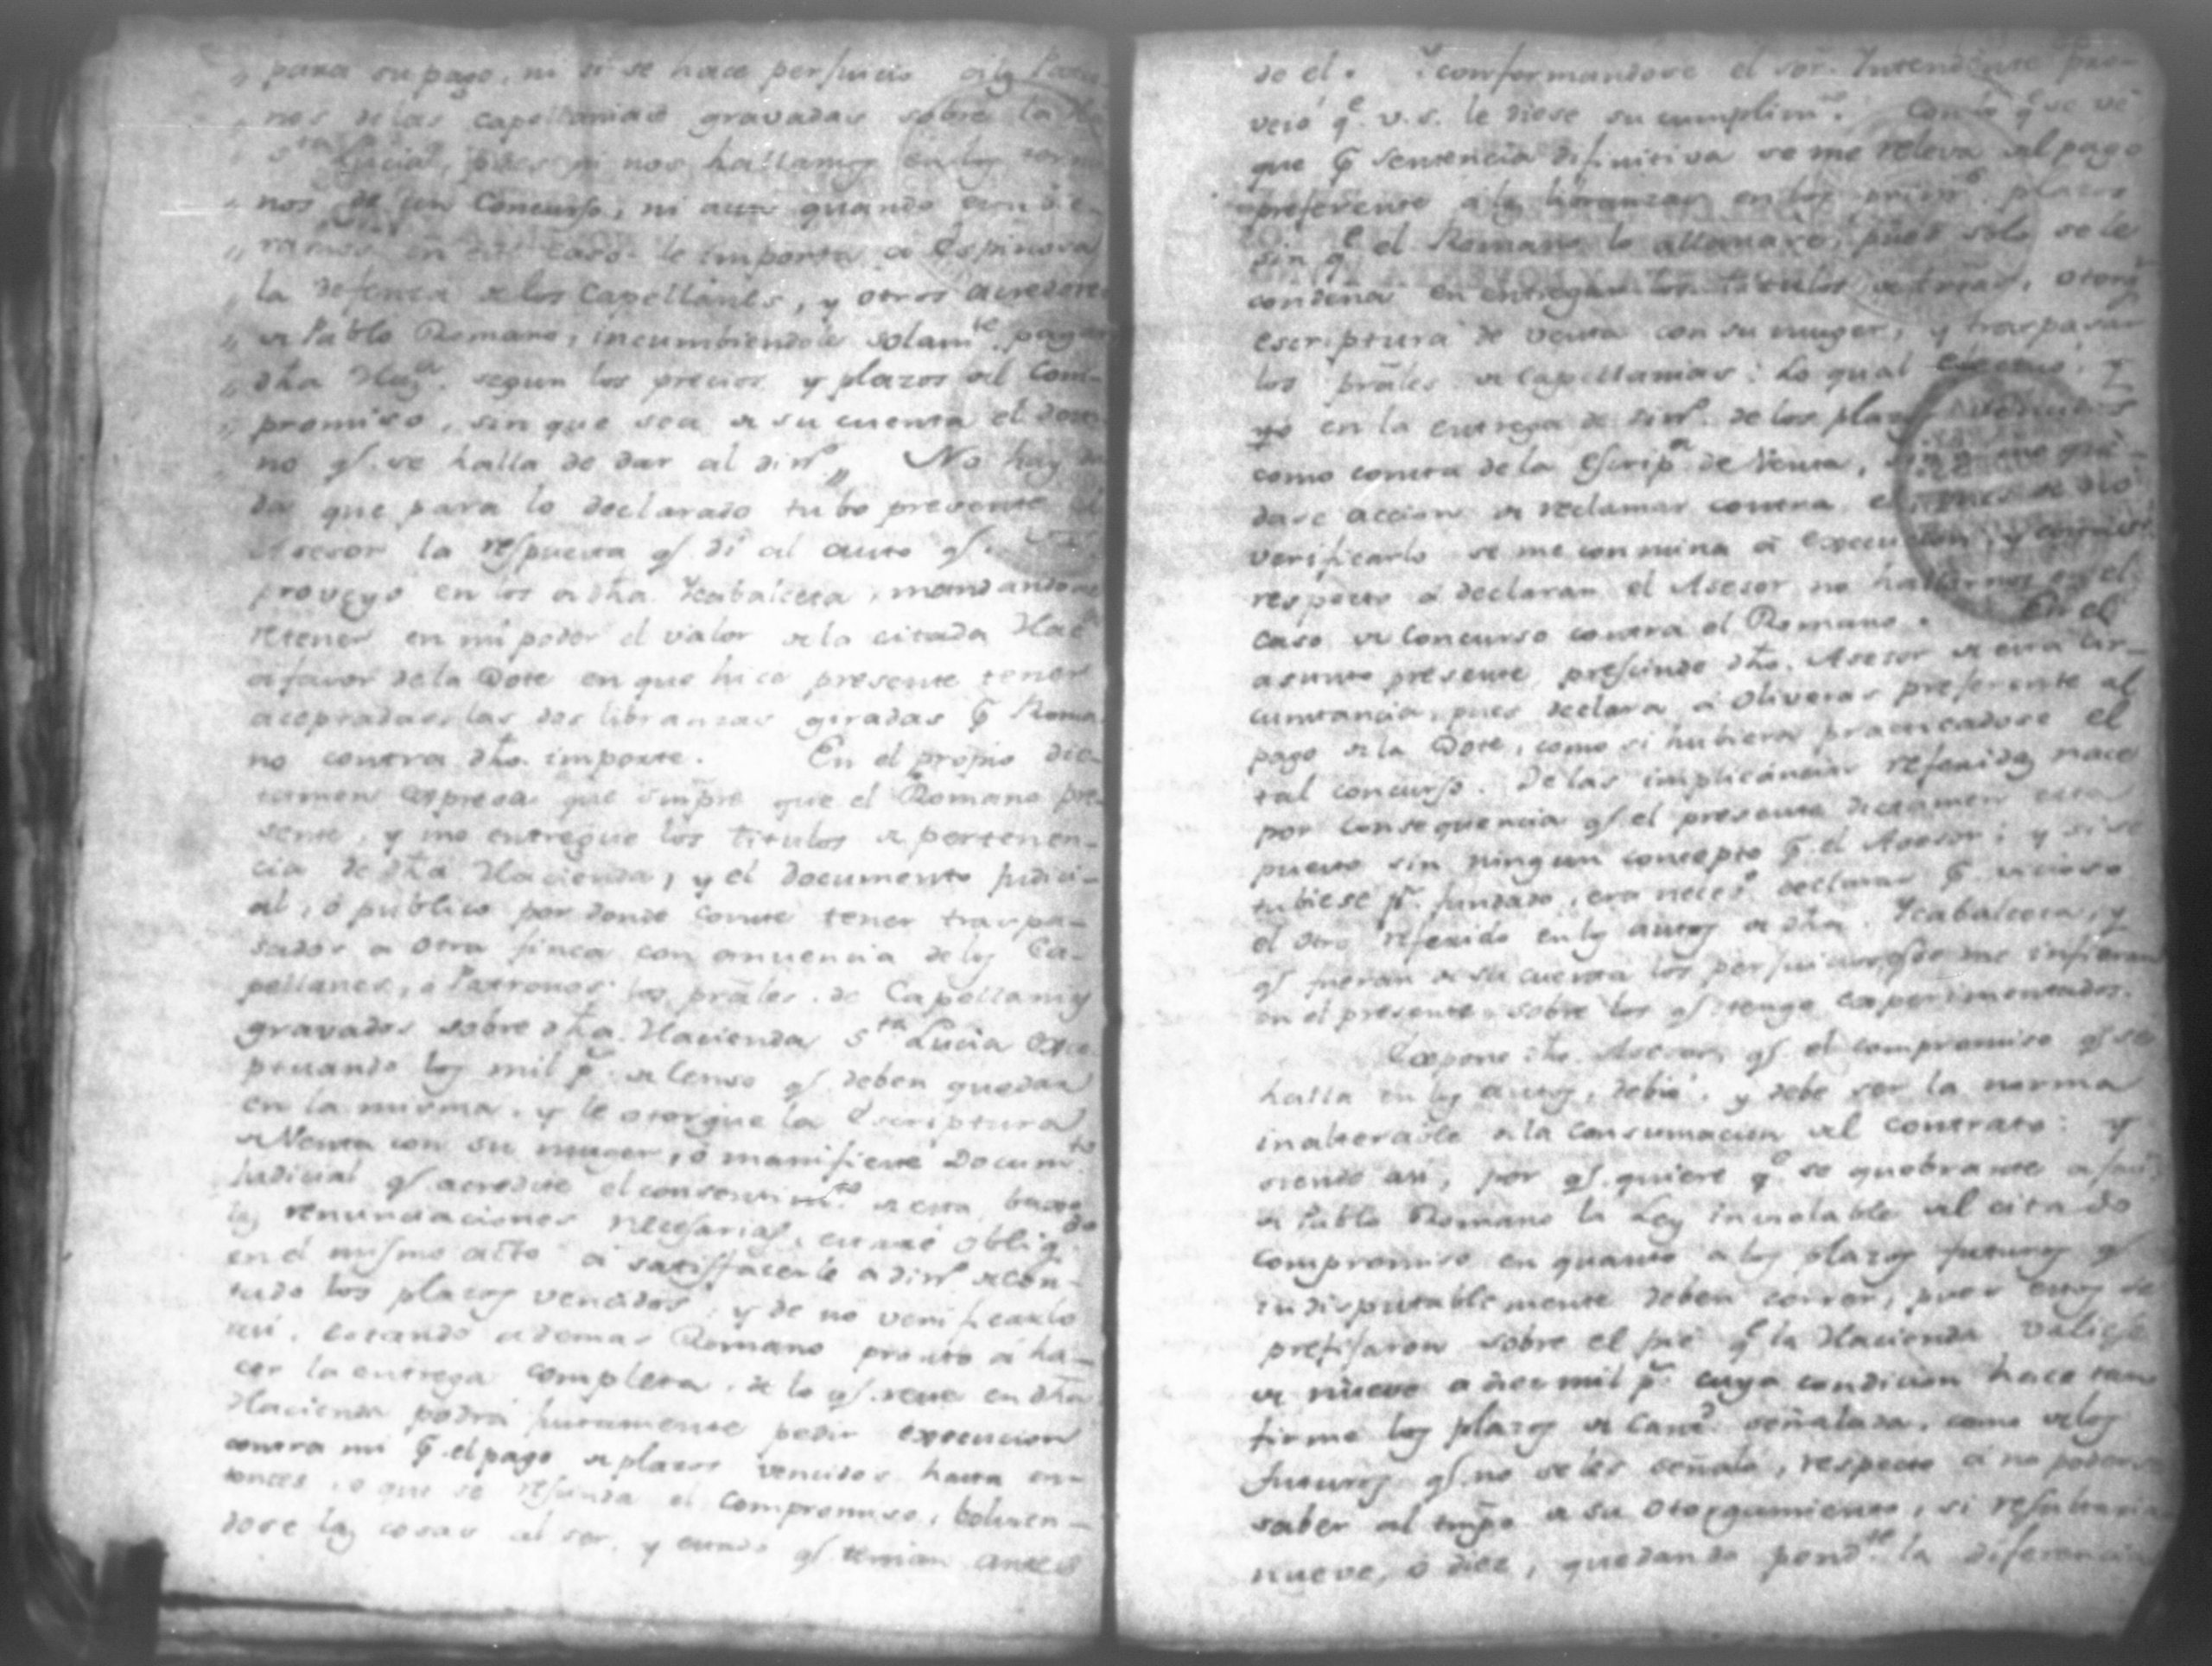 " para su pago, ni si se hace perjuicio a los Patro-
" nos de las capellanias gravadas sobre la
" Sta. Lucia, pues ni nos hallamos en los termi-
" nos de un Concurso, ni aun quando
" en tal caso le importa a Espinosa
" la defensa de los Capellanes, y otros acredores
" de Pablo Romano, incumbiendole solamte. pagar
" dha Haza. segun los precios y plazos del Com-
" promiso, sin que sea de su cuenta el desti-
no qe. se halla de dar al dinro. " No hay du-
da que para lo declarado tubo presente el
Asesor la respuesta qe. di al auto qe. V.S.
proveyo en los de dha. Ycabalceta, mandandome
retener en mi poder el valor de la citada Haza.
a favor de la Dote en que hice presente tener
aceptadas las dos libranzas giradas pr. Roma-
no contra dho. importe. En el propio dic-
tamen expresa que simpre que el Romano pre-
sente, y me entregue los titulos de pertenen-
cia de dha Hacienda, y el documento judici-
al, ó publico por donde conste tener traspa-
sados a otra finca con anuencia de los Ca-
pellanes, ó Patronos los prales. de Capellanias
gravados sobre dha. Hacienda Sta. Lucia excep-
ptuando los mil ps. de censo qe. deben quedar
en la misma, y le otorgue la Escriptura
de Venta con su muger, ó manifieste Documto.
judicial qe. acredite el consentimto. de esta, baxo
las renunciaciones necesarias, estaré obligdo.
en el mismo acto á satisfacerle a dinro. de con-
tado los plazos vencidos, y de no verificarlo
asi, estando ademas Romano pronto á ha-
cer la entrega completa, de lo qe. reste en dha
Hacienda podrá justamente pedir execucion
contra mi pr. el pago de plazos vencidos hasta en-
tonces, o que se resinda el compromiso, bolvien-
dose las cosas al ser, y estado qe. tenian antes
de el. Y conformandose el sor. Yntendente pro-
veió qe. V.S. le diese su cumplimto. Con lo qe. se vé
que pr. sentencia difinitiva se me releva del pago
preferente a las libranzas en los primos. plazos
sin qe. el Romano lo allanare, pues solo se le
condena en entregar los titulos otorgr.
escriptura de venta con su muger, y traspasar
los prales. de Capellanias: Lo qual efectuo, y
yo en la entrega de dinro. de los plazos vencidos
como consta de la Escripra. de Venta, sin que me que-
dase accion de reclamar contra el pues de no
verificarlo se me conmina á execucion, y
respecto á declarar el Asesor no hallarnos en el
caso de Concurso contra el Romano. En el
asunto presente prescinde dho. Asesor de esta cir-
cunstancia, pues declara á Oliveras preferente al
pago de la Dote, como si hubiera practicadose el
tal concurso. De las implicáncias referidas nace
por consequencia qe. el presente dictamen esta
puesto sin ningun concepto pr. el Asesor; y si se
tubiese pr. fundado, era neceso. declarar pr. vicioso
el otro referido en los autos de dha. Ycabalceta, y
qe. fueran de su cuenta los perjuicios qe. se me infieran
en el presente, sobre los qe. tengo experimentados.
Expone dho. Asesor, qe. el compromiso qe. se
halla en los autos, debió, y debe ser la norma
inalterable de la consumacion del contrato: y
siendo asi, por qe. quiere qe. se quebrante a favr.
de Pablo Romano la Ley inviolable del citado
compromiso en quanto a los plazos futuros qe.
indisputablemente deben correr, pues estos se
prefixaron sobre el pie qe. la Hacienda valiese
de nueve a diez mil ps. cuya condicion hace tan
firme los plazos de cantd. señalada, como de los
futuros qe. no se les señaló, respecto á no poderse
saber al tmpo. de su otorgamiento, si resultaria
nueve, ó diez, quedando pendte. la diferencia